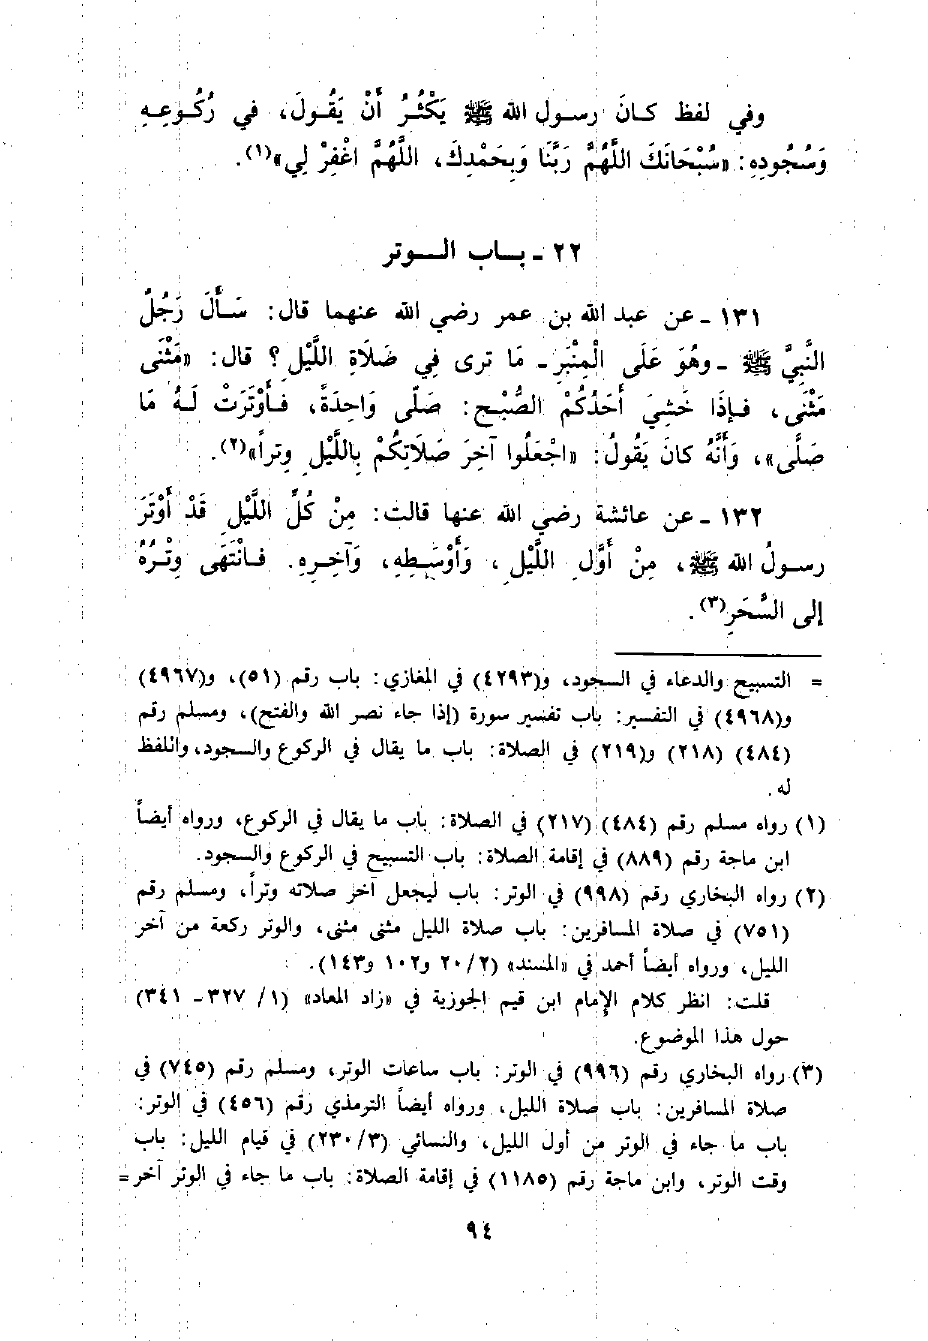 وفي لفظ كـانَ رسـول الله ﷺ يَكْثُـرُ أَنْ يَقُولَ، في رُكُـوعِـهِ
وَسُجُودِهِ: «سُبْحَانَكَ اللَّهُمَّ رَبَّنَا وَبِحَمْدِكَ، اللَّهُمَّ اغْفِرْ لِي»(١).
٢٢ ـ بـاب الـوتر
١٣١ ـ عن عبد الله بن عمر رضي الله عنهما قال: سَـأَلَ رَجُلٌ
النَّبِيَّ ﷺ ـ وهُوَ عَلَى الْمِنْبَرِ ـ مَا ترى فِي صَلَاةِ اللَّيْلِ؟ قال: «مَثْنَى
مَثْنَى، فـإذَا خَشِيَ أَحَدُكُمْ الصُّبْـح: صَلّى وَاحِدَةً، فَـأَوْتَرَتْ لَـهُ مَا
صَلَّى»، وَأَنَّهُ كانَ يَقُولُ: «اجْعَلُوا آخِرَ صَلَاتِكُمْ بِاللَّيْلِ وِتراً»(٢).
١٣٢ ـ عن عائشة رضي الله عنها قالت: مِنْ كُلِّ اللَّيْلِ قَدْ أَوْتَرَ
رسـولُ الله ﷺ، مِنْ أَوَّلِ اللَّيْلِ، وَأَوْسَـطِهِ، وَآخِـرِهِ. فَـانْتَهَى وِتْـرُهُ
إلى السَّحَرِ(٣).
= التسبيح والدعاء في السجود، و(٤٢٩٣) في المغازي: باب رقم (٥١)، و(٤٩٦٧)
و(٤٩٦٨) في التفسير: باب تفسير سورة (إذا جاء نصر الله والفتح)، ومسلم رقم
(٤٨٤) (٢١٨) و(٢١٩) في الصلاة: باب ما يقال في الركوع والسجود، واللفظ
له.
(١) رواه مسلم رقم (٤٨٤) (٢١٧) في الصلاة: باب ما يقال في الركوع، ورواه أيضاً
ابن ماجة رقم (٨٨٩) في إقامة الصلاة: باب التسبيح في الركوع والسجود.
(٢) رواه البخاري رقم (٩٩٨) في الوتر: باب ليجعل آخر صلاته وتراً، ومسلم رقم
(٧٥١) في صلاة المسافرين: باب صلاة الليل مثنى مثنى، والوتر ركعة من آخر
الليل، ورواه أيضاً أحمد في «المسند» (٢/ ٢٠ و١٠٢ و١٤٣).
قلت: انظر كلام الإمام ابن قيم الجوزية في «زاد المعاد» (١/ ٣٢٧ ـ ٣٤١)
حول هذا الموضوع.
(٣) رواه البخاري رقم (٩٩٦) في الوتر: باب ساعات الوتر، ومسلم رقم (٧٤٥) في
صلاة المسافرين: باب صلاة الليل، ورواه أيضاً الترمذي رقم (٤٥٦) في الوتر:
باب ما جاء في الوتر من أول الليل، والنسائي (٣/ ٢٣٠) في قيام الليل: باب
وقت الوتر، وابن ماجة رقم (١١٨٥) في إقامة الصلاة: باب ما جاء في الوتر آخر =
٩٤